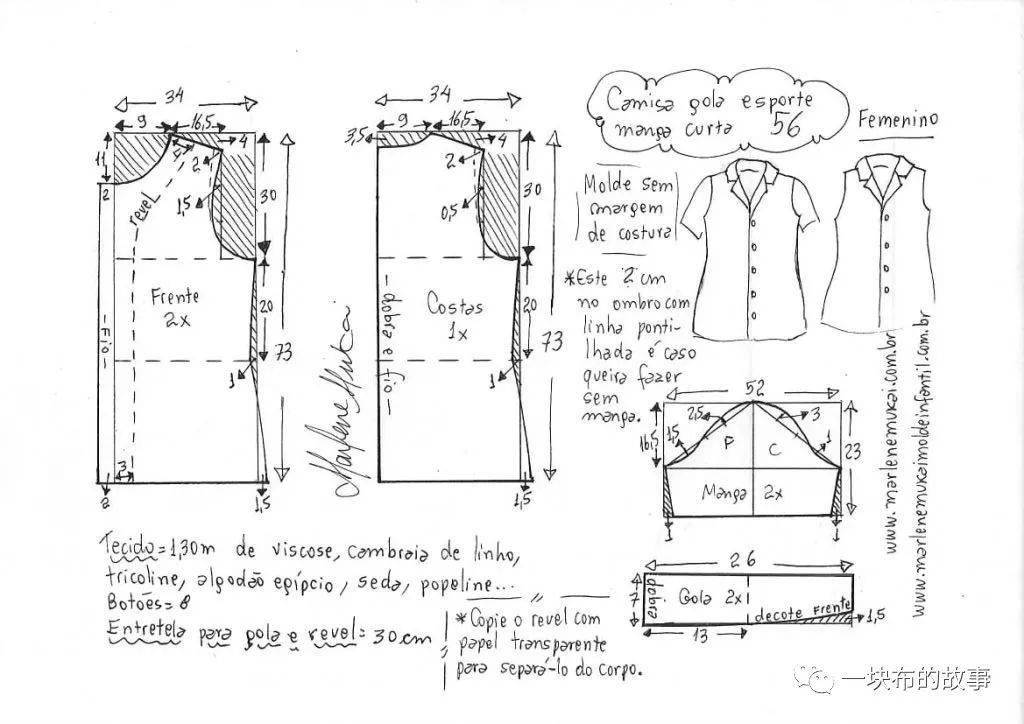 Camisa gola esporte
manga curta 56
Femenino
34
9
16,5
11
4
4
2
2
1,5
30
revel
Frente
2x
20
73
-Fio-
1
3
2
1,5
34
9
16,5
3,5
4
2
0,5
30
Costas
1x
20
73
-dobra e fio-
1
1,5
Marlene Mukai
Molde sem
margem
de costura
*Este 2 cm
no ombro com
linha ponti-
lhada é caso
queira fazer
sem
manga.
52
2,5
3
16,5
1,5
F
C
1
23
Manga 2x
1
1
26
7
dobra
Gola 2x
decote Frente
1,5
13
www.marlenemukai.com.br
www.marlenemukaimoldeinfantil.com.br
Tecido=1,30m de viscose, cambraia de linho,
tricoline, algodão egípcio, seda, popeline...
Botões=8
Entretela para gola e revel=30cm
*Copie o revel com
papel transparente
para separá-lo do corpo.
一块布的故事